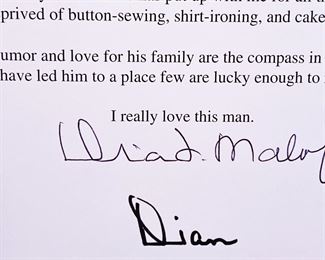 put up with me for all
prived of button-sewing, shirt-ironing, and cake
umor and love for his family are the compass in
have led him to a place few are lucky enough to
I really love this man.
Dian